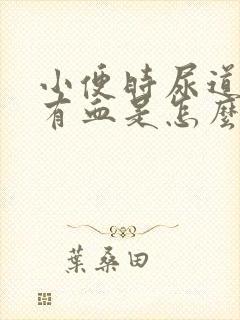 小便時尿道
有血是怎麼
葉桑田